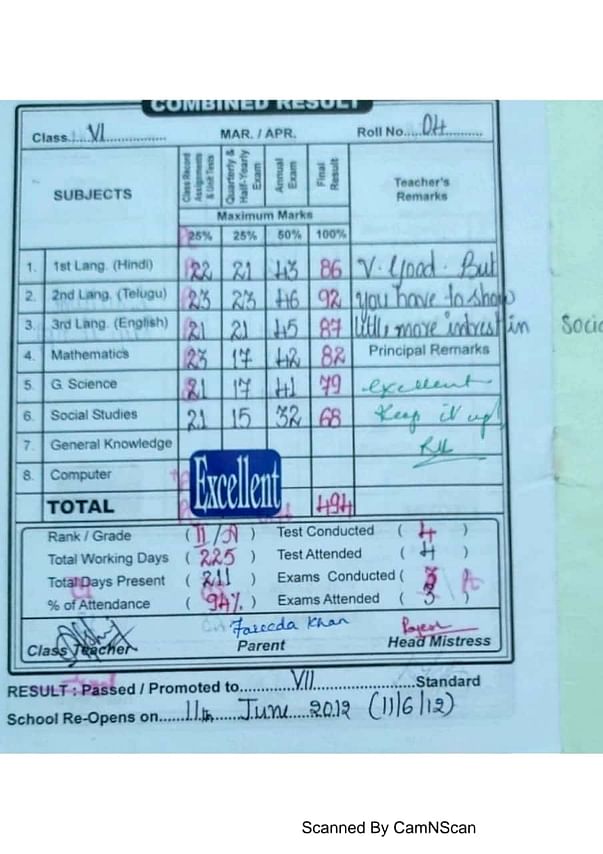 COMBINED RESULT
Class VI MAR. / APR. Roll No. 04
SUBJECTS Class Record Assignments & Unit Tests Quarterly & Half-Yearly Exam Annual Exam Final Result Teacher's Remarks
Maximum Marks
25% 25% 50% 100%
1. 1st Lang. (Hindi) 22 21 43 86 V. Good. But
2. 2nd Lang. (Telugu) 23 23 46 92 you have to show
3. 3rd Lang. (English) 21 21 45 87 little more intrest in Socia
4. Mathematics 23 17 42 82 Principal Remarks
5. G. Science 21 17 41 79 excellent
6. Social Studies 21 15 32 68 Keep it up!
7. General Knowledge
8. Computer
Excellent
TOTAL 494
Rank / Grade ( II/A ) Test Conducted ( 4 )
Total Working Days ( 225 ) Test Attended ( 4 )
Total Days Present ( 211 ) Exams Conducted ( 3 )
% of Attendance ( 94% ) Exams Attended ( 3 )
Fareeda Khan
Class Teacher Parent Head Mistress
RESULT : Passed / Promoted to VII Standard
School Re-Opens on 11th June 2012 (11/6/12)
Scanned By CamNScan